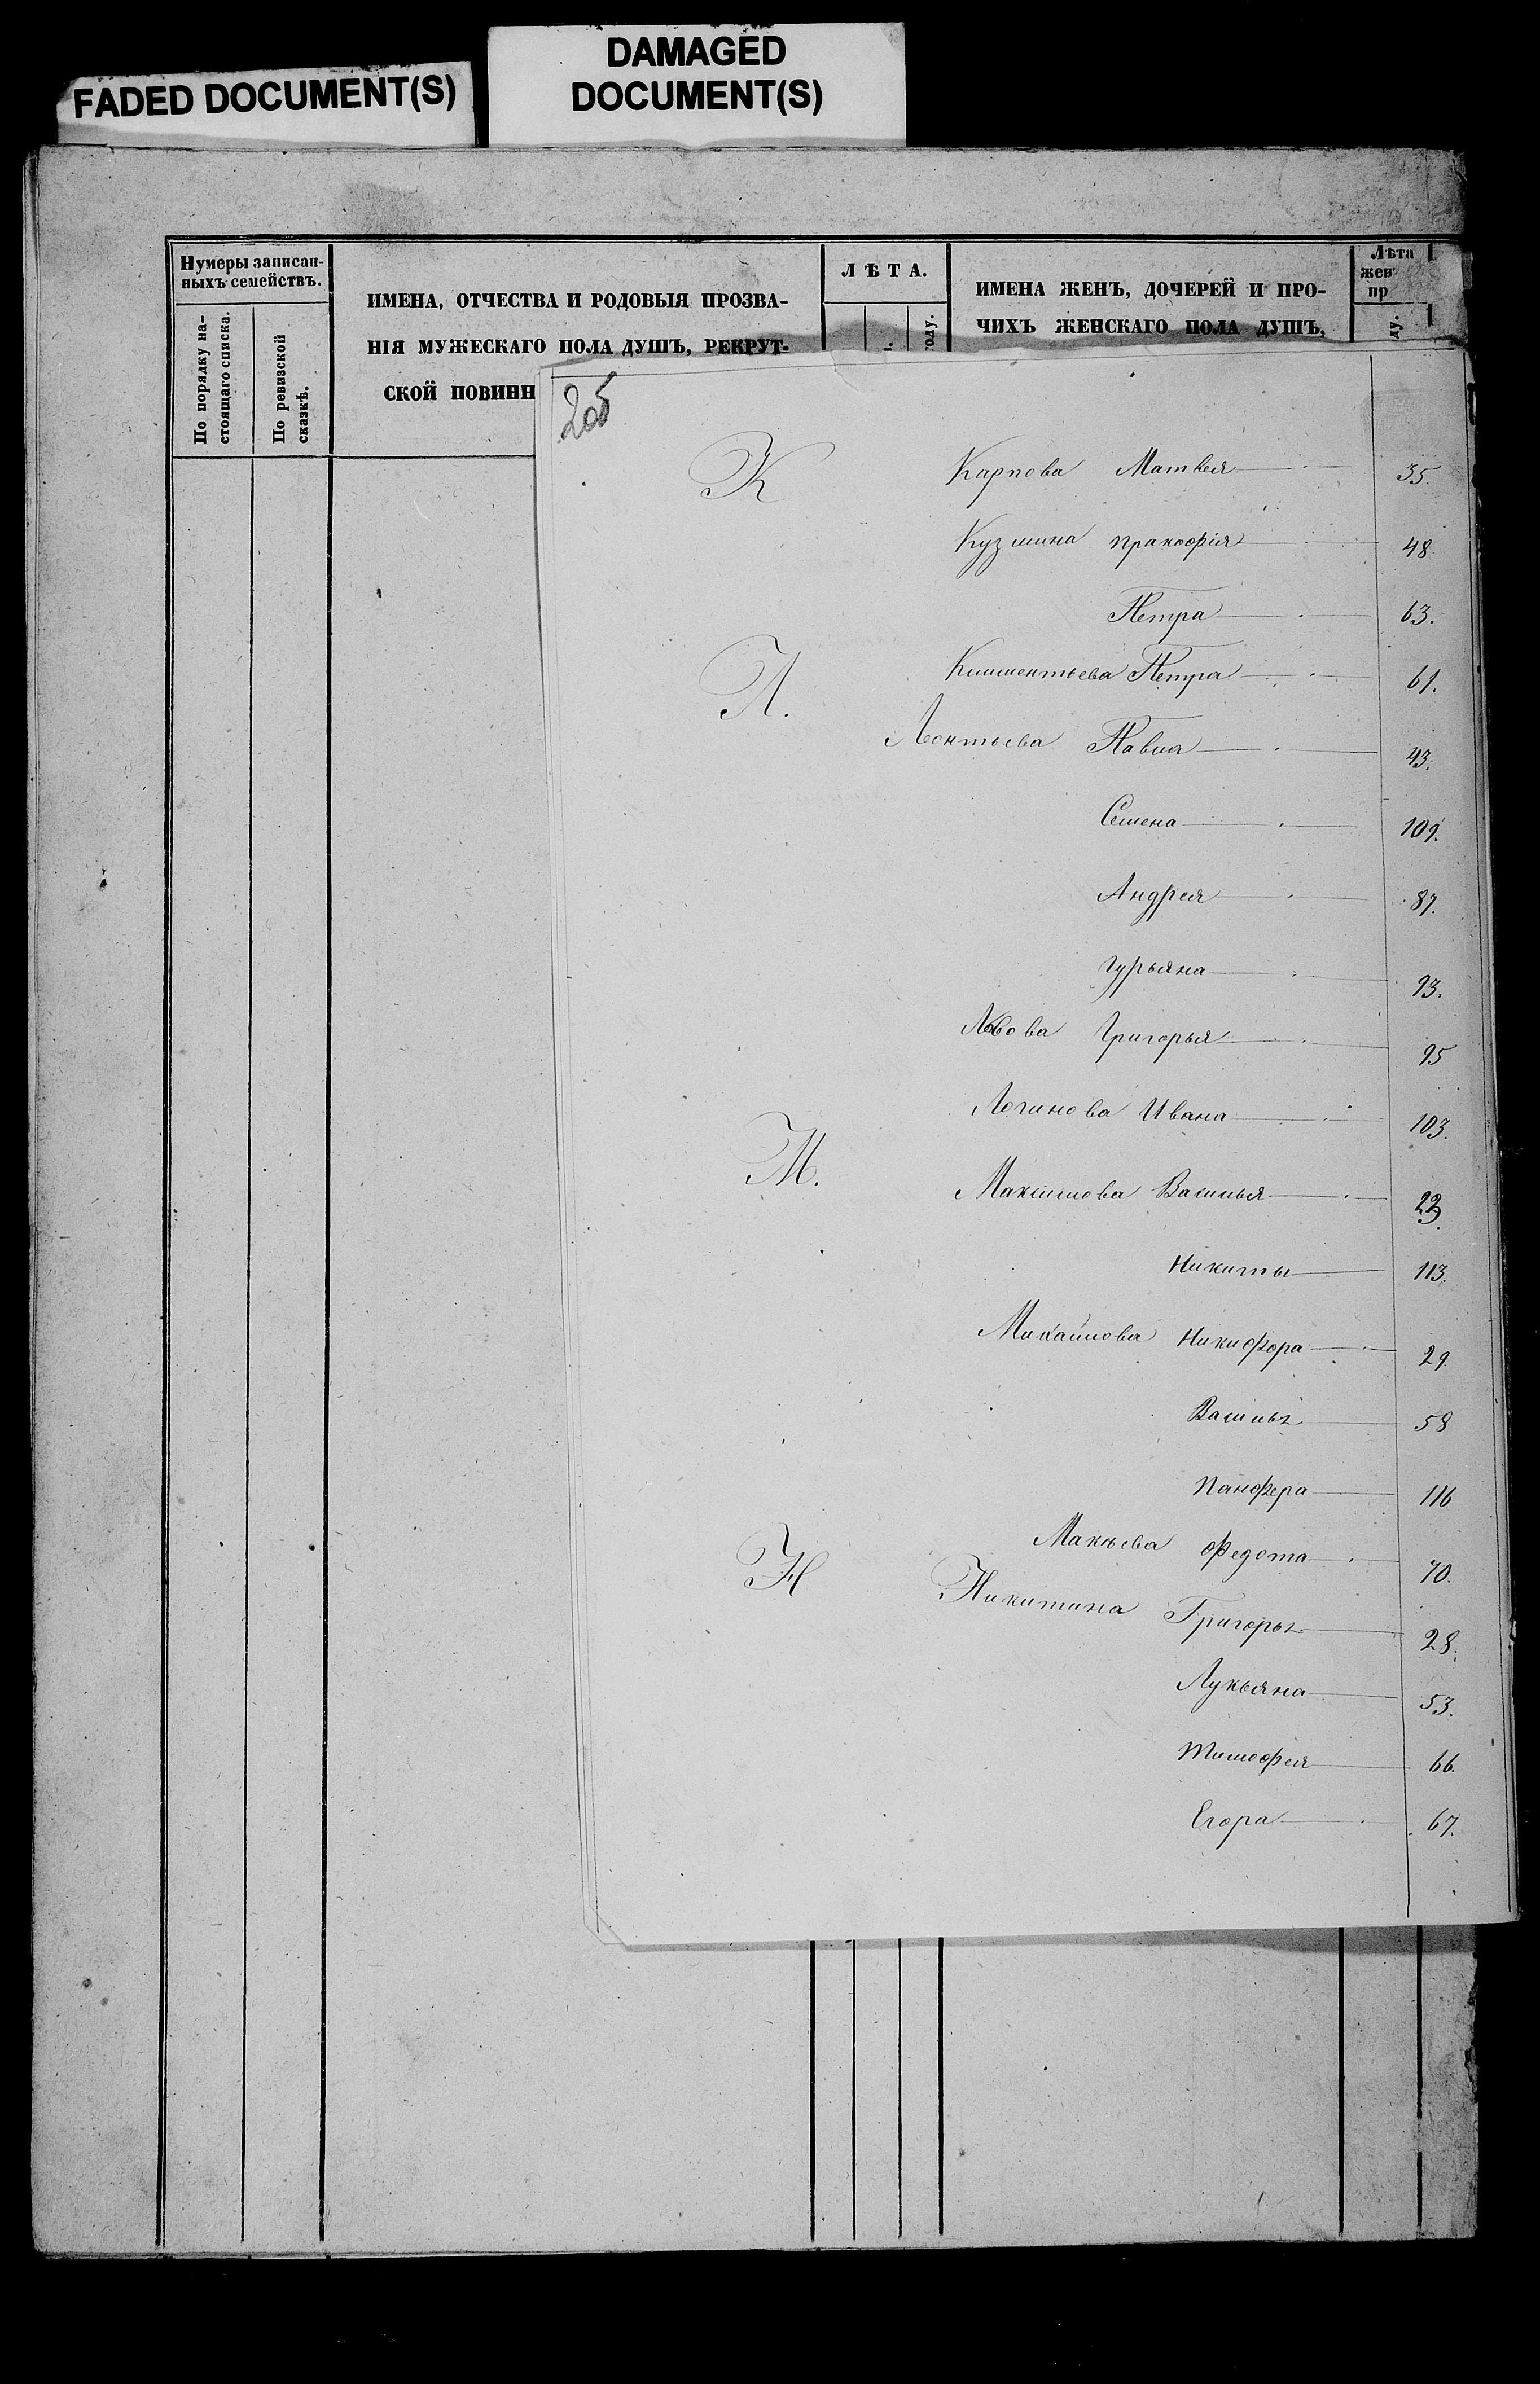 FADED DOCUMENT(S)
DAMAGED
DOCUMENT(S)
Нумеры записан-
ныхъ семействъ.
По порядку на-
стоящаго списка.
По ревизской
сказкѣ.
ИМЕНА, ОТЧЕСТВА И РОДОВЫЯ ПРОЗВА-
НІЯ МУЖЕСКАГО ПОЛА ДУШЪ, РЕКРУТ-
СКОЙ ПОВИНН
ЛѢТА.
году.
ИМЕНА ЖЕНЪ, ДОЧЕРЕЙ И ПРО-
ЧИХЪ ЖЕНСКАГО ПОЛА ДУШЪ,
Лѣта
жен
пр
ду.
205
К Карпова Матвея 35.
Кузмина Пракофія 48
Петра 63.
Климентьева Петра 61.
Л.
Леонтьева Павла 43.
Семена 109.
Андрея 87.
Гурьяна 93.
Львова Григорья 95
Логинова Ивана 103.
М.
Максимова Василья 23.
Никиты 113.
Михайлова Никифора 29.
Василья 58
Панфера 116
Макѣева Федота 70.
Н Никитина Григорья 28.
Лукьяна 53.
Тимофея 66.
Егора 67.